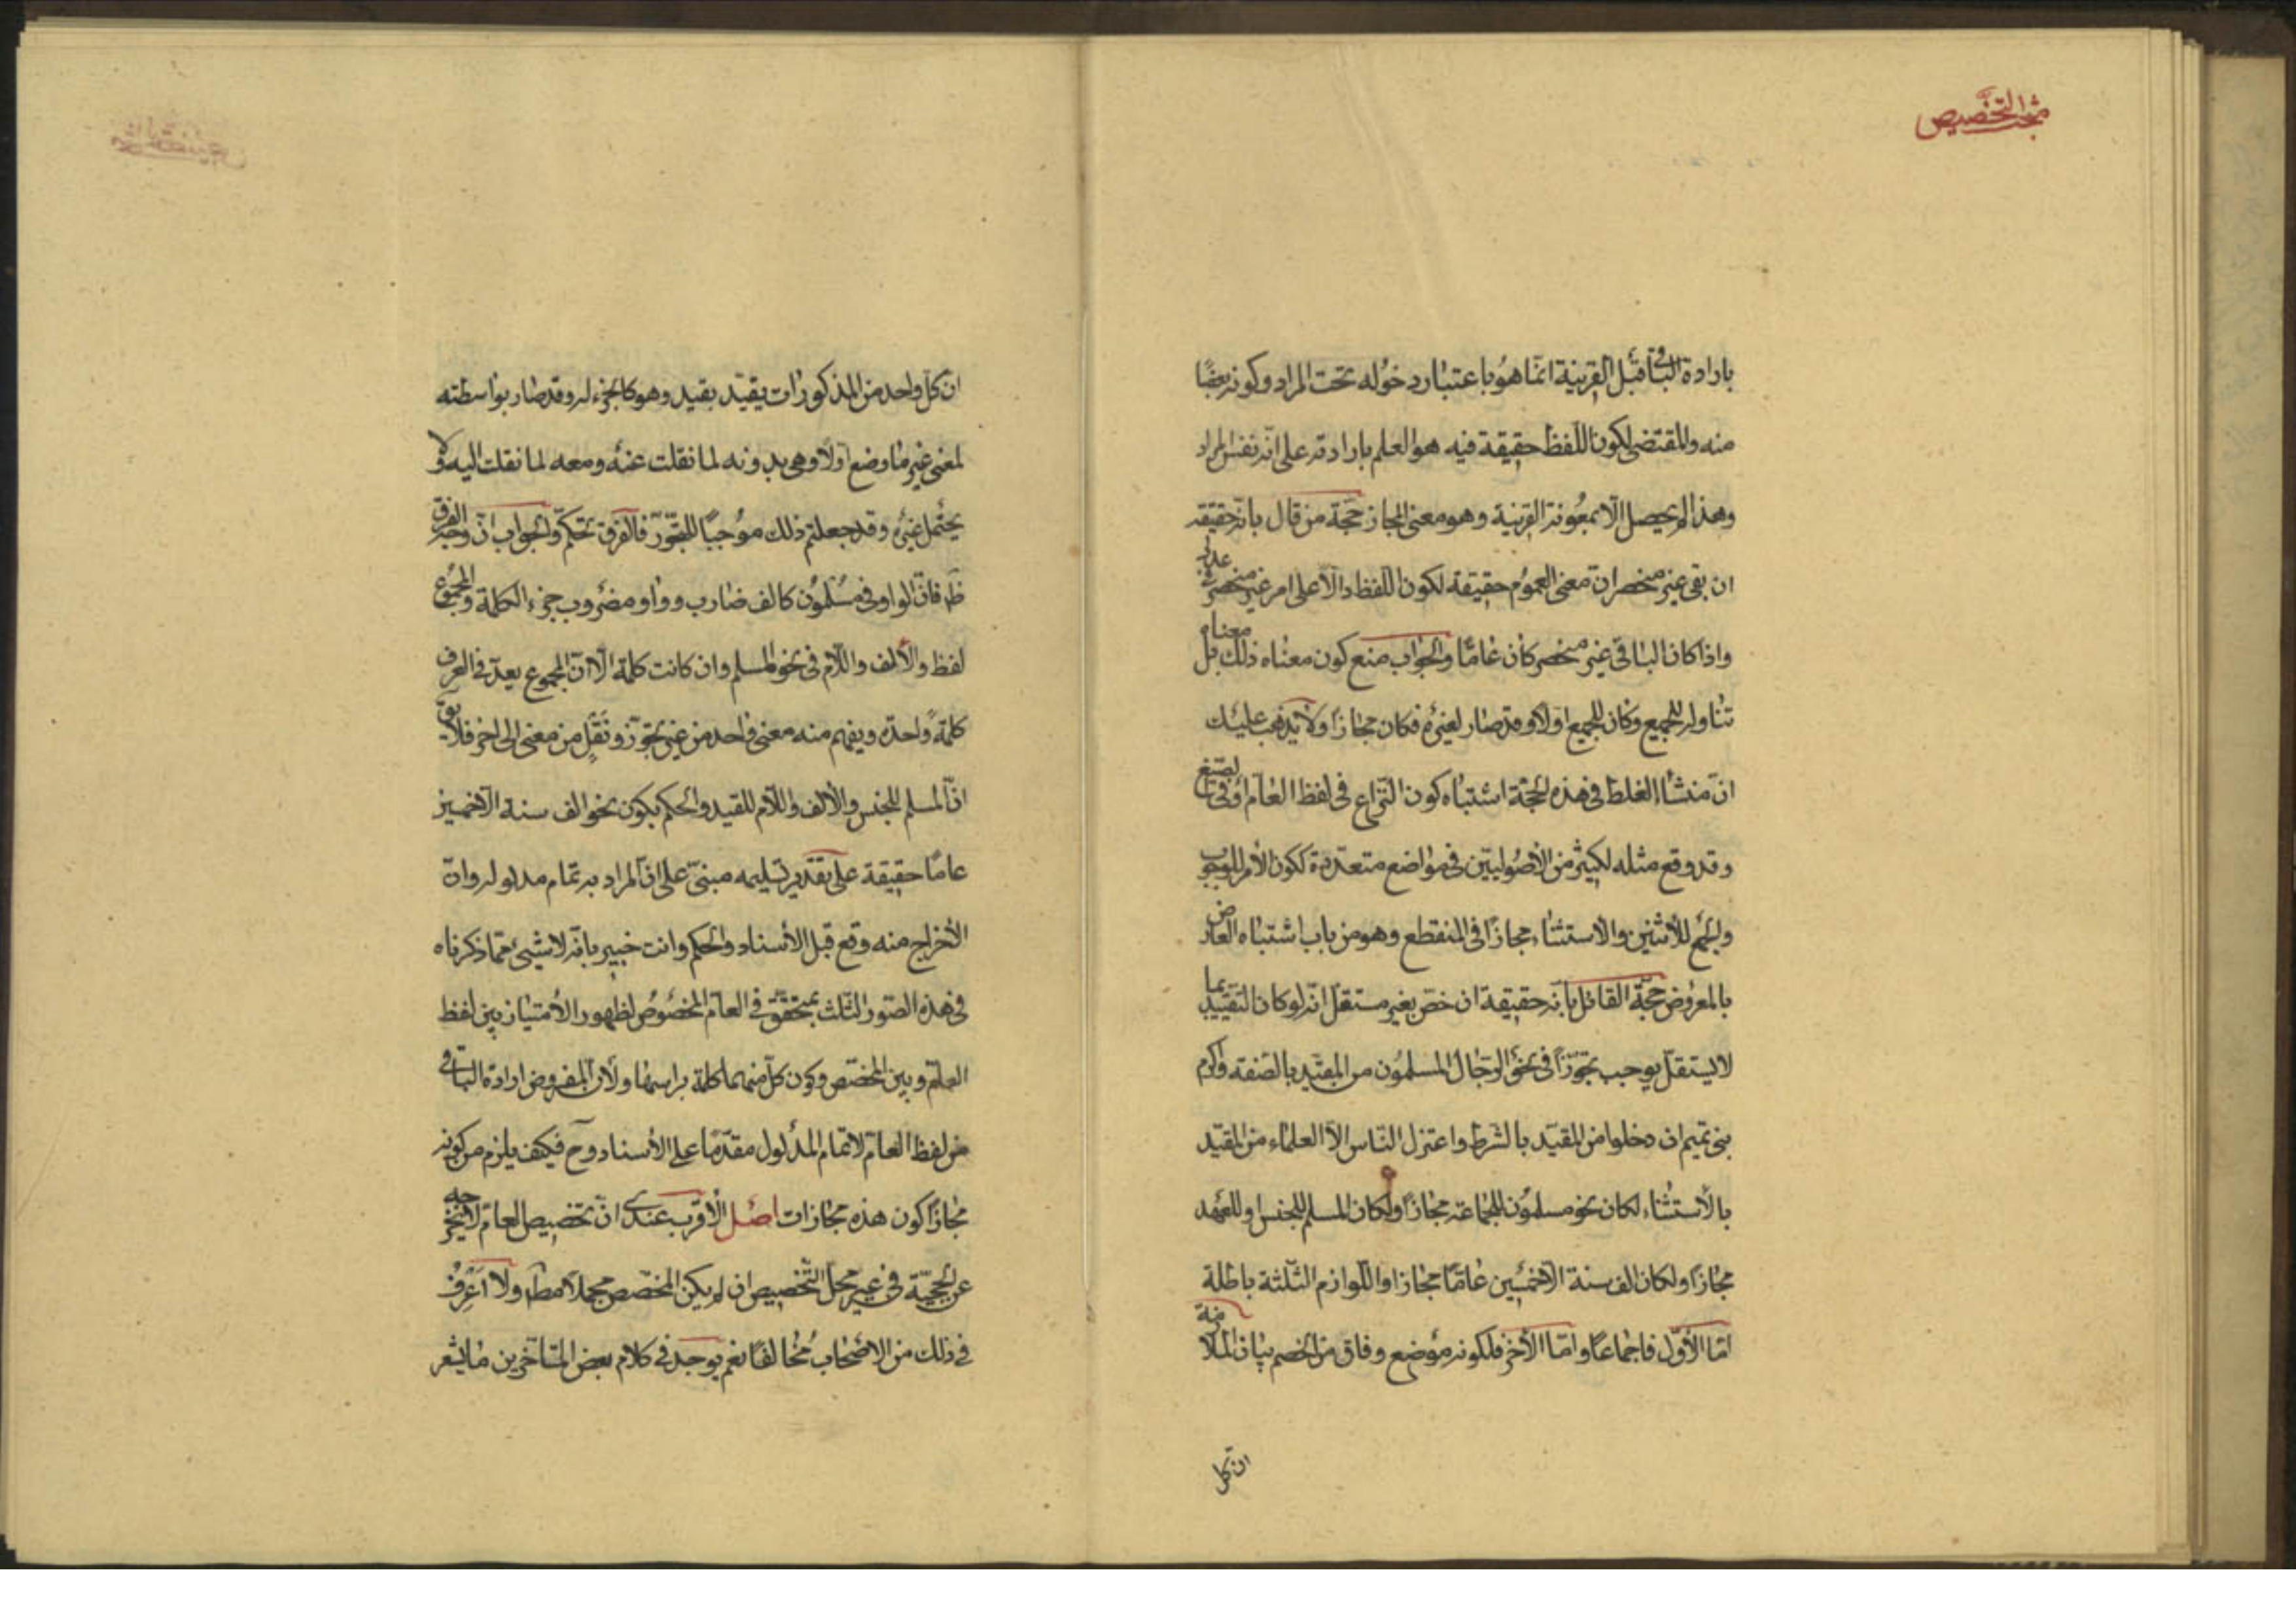 مبحث التخصيص
بارادة الباقى قبل القرينة انما هو باعتبار دخوله تحت المراد وكونه بعضا
منه والمقتضى لكون اللفظ حقيقة فيه هو العلم بارادته على انه نفس المراد
وهذا لم يحصل الا بمعونة القرينة وهو معنى المجاز حجة من قال بانه حقيقة
ان بقى غير منحصر ان معنى العموم حقيقة لكون اللفظ دالا على امر غير منحصر فى عدد
واذا كان الباقى غير منحصر كان عاما والجواب منع كون معناه ذلك بل معناه
تناوله للجميع وكان للجميع اولا وقد صار لغيره فكان مجازا ولا يذهب عليك
ان منشأ الغلط فى هذه الحجة اشتباه كون النزاع فى لفظ العام او فى الصيغ
وقد وقع مثله لكثير من الأصوليين فى مواضع متعددة ككون الأمر للوجوب
والجمع للأثنين والاستثناء مجازا فى المنقطع وهو من باب اشتباه العارض
بالمعروض حجة القائل بانه حقيقة ان خص بغير مستقل انه لو كان التقييد بما
لا يستقل يوجب تجوزا فى نحو الرجال المسلمون من المقيد بالصفة واكرم
بنى تميم ان دخلوا من المقيد بالشرط واعتزل الناس الا العلماء من المقيد
بالأستثناء لكان نحو مسلمون للجماعة مجازا ولكان المسلم للجنس وللعهد
مجازا ولكان الف سنة الا خمسين عاما مجازا واللوازم الثلثة باطلة
اما الأول فاجماعا واما الأخر فلكونه موضع وفاق من الخصم بيان الملازمة
ان كل
ان كل واحد من المذكورات يقيد بقيد وهو كالجزء له وقد صار بواسطته
لمعنى غير ما وضع اولا وهى بدونه لما نقلت عنه ومعه لما نقلت اليه ولا
يحتمل غيره وقد جعلتم ذلك موجبا للتجوز فالفرق تحكم والجواب ان وجه الفرق
ظ فان الواو فى مسلمون كالف ضارب وواو مضروب جزء الكلمة والمجموع
لفظ والألف واللام فى نحو المسلم وان كانت كلمة الا ان المجموع يعد فى العرف
كلمة واحدة ويفهم منه معنى واحد من غير تجوز ونقل من معنى الى اخر فلا يق
ان المسلم للجنس والألف واللام للقيد والحكم بكون نحو الف سنة الا خمسين
عاما حقيقة على تقدير تسليمه مبنى على ان المراد به تمام مدلوله وان
الأخراج منه وقع قبل الأسناد والحكم وانت خبير بانه لا شيئ مما ذكرناه
فى هذه الصور الثلث بمتحقق فى العام المخصوص لظهور الأمتياز بين لفظ
العام وبين المخصص وكون كل منهما كلمة براسها ولأن المفروض ارادة الباقى
من لفظ العام لا تمام المدلول مقدما على الأسناد وح فكيف يلزم من كونه
مجازا كون هذه مجازات اصل الأقرب عندى ان تخصيص العام لا يخرجه
عن الحجية فى غير محل التخصيص ان لم يكن المخصص مجملا مطا ولا اعرف
فى ذلك من الاصحاب مخالفا نعم يوجد فى كلام بعض المتأخرين ما يشعر